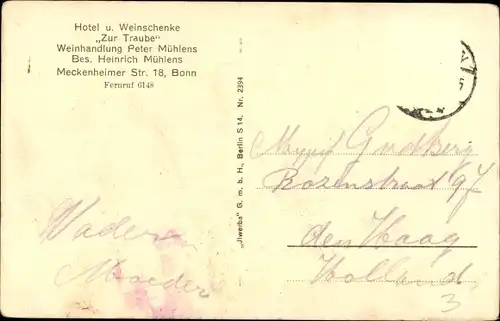 Hotel u. Weinschenke
„Zur Traube"
Weinhandlung Peter Mühlens
Bes. Heinrich Mühlens
Meckenheimer Str. 18, Bonn
Fernruf 6148
„Jiwerba" G. m. b. H., Berlin S 14, Nr. 2394
Rozenstraat 97
den Haag
Holland
3
Vader
Moeder